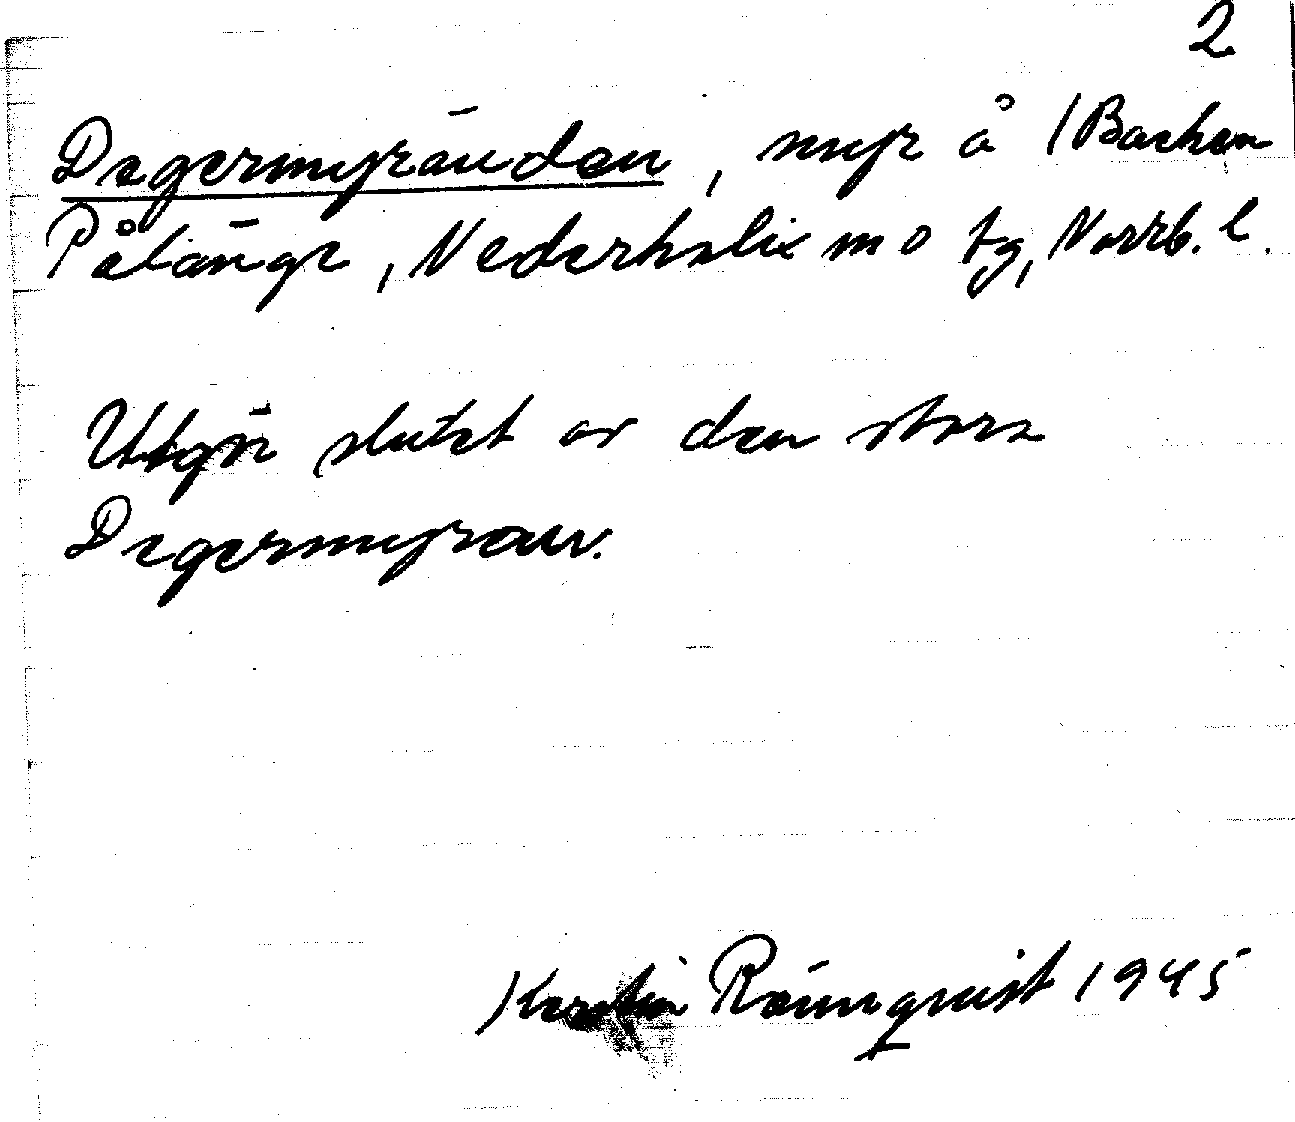 2
Degermyränden, myr å /Backen
Pålänge, Nederkalix m o tg, Norrb. l.
Utgör slutet av den stora
Degermyran.
Kerstin Rönnquist 1945